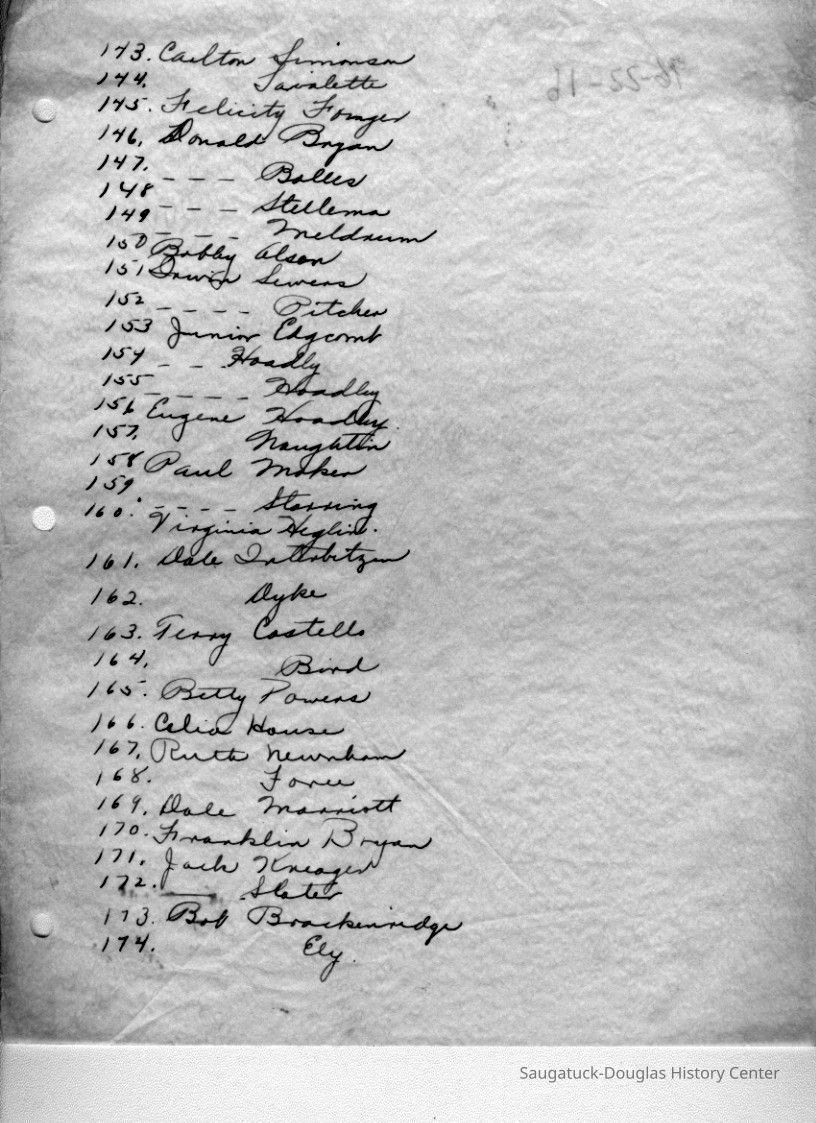 96-22-16
143. Carlton Simonson
144. Tavalette
145. Felicity Fonger
146. Donald Bryan
147. - - - Balles
148 - - - Stellema
149 - - - Meldrum
150 Bobby Olson
151 Irwin Sewers
152 - - - - Pitcher
153 Junior Edgcomb
154 - - Hoadly
155 - - - - Hoadley
156 Eugene Hoadley.
157. Naughtin
158 Paul Maker
159 - - - - Starring
160. Virginia
161. Dale Interbitzen
162. Dyke
163. Terry Costello
164. Bird
165. Betty Powers
166. Celia House
167. Ruth Newnham
168. Force
169. Dale Marriott
170. Franklin Bryan
171. Jack Kreager
172. — Slater
173. Bob Brackenridge
174. Ely.
Saugatuck-Douglas History Center